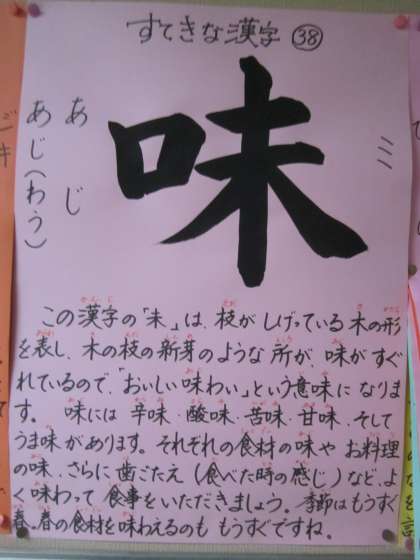 すてきな漢字 ㊳
味
ミ
あじ
あじ(わう)
この漢字の「未」は、枝がしげっている木の形
を表し、木の枝の新芽のような所が、味がすぐ
れているので、「おいしい味わい」という意味になりま
す。味には辛味・酸味・苦味・甘味、そして
うま味があります。それぞれの食材の味やお料理
の味、さらに歯ごたえ(食べた時の感じ)など、よ
く味わって食事をいただきましょう。季節はもうすぐ
春。春の食材を味わえるのももうすぐですね。